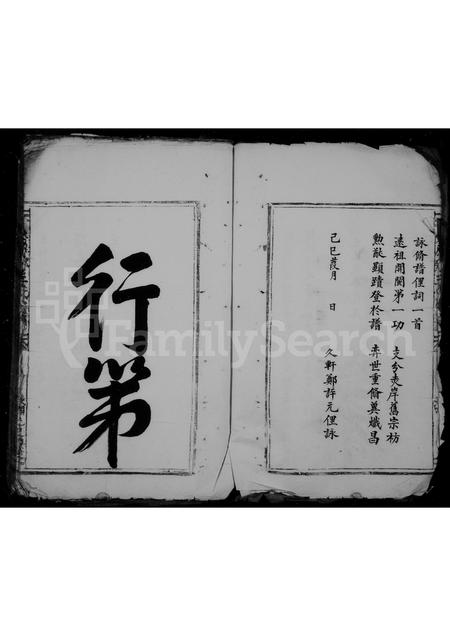 詠脩譜俚詞一首
遠祖開閩第一功 支分夾岸舊宗枋
勲猷顯蹟登於譜 弈世重脩冀熾昌
己巳葭月 日
久軒鄭詳元俚詠
行第
FamilySearch